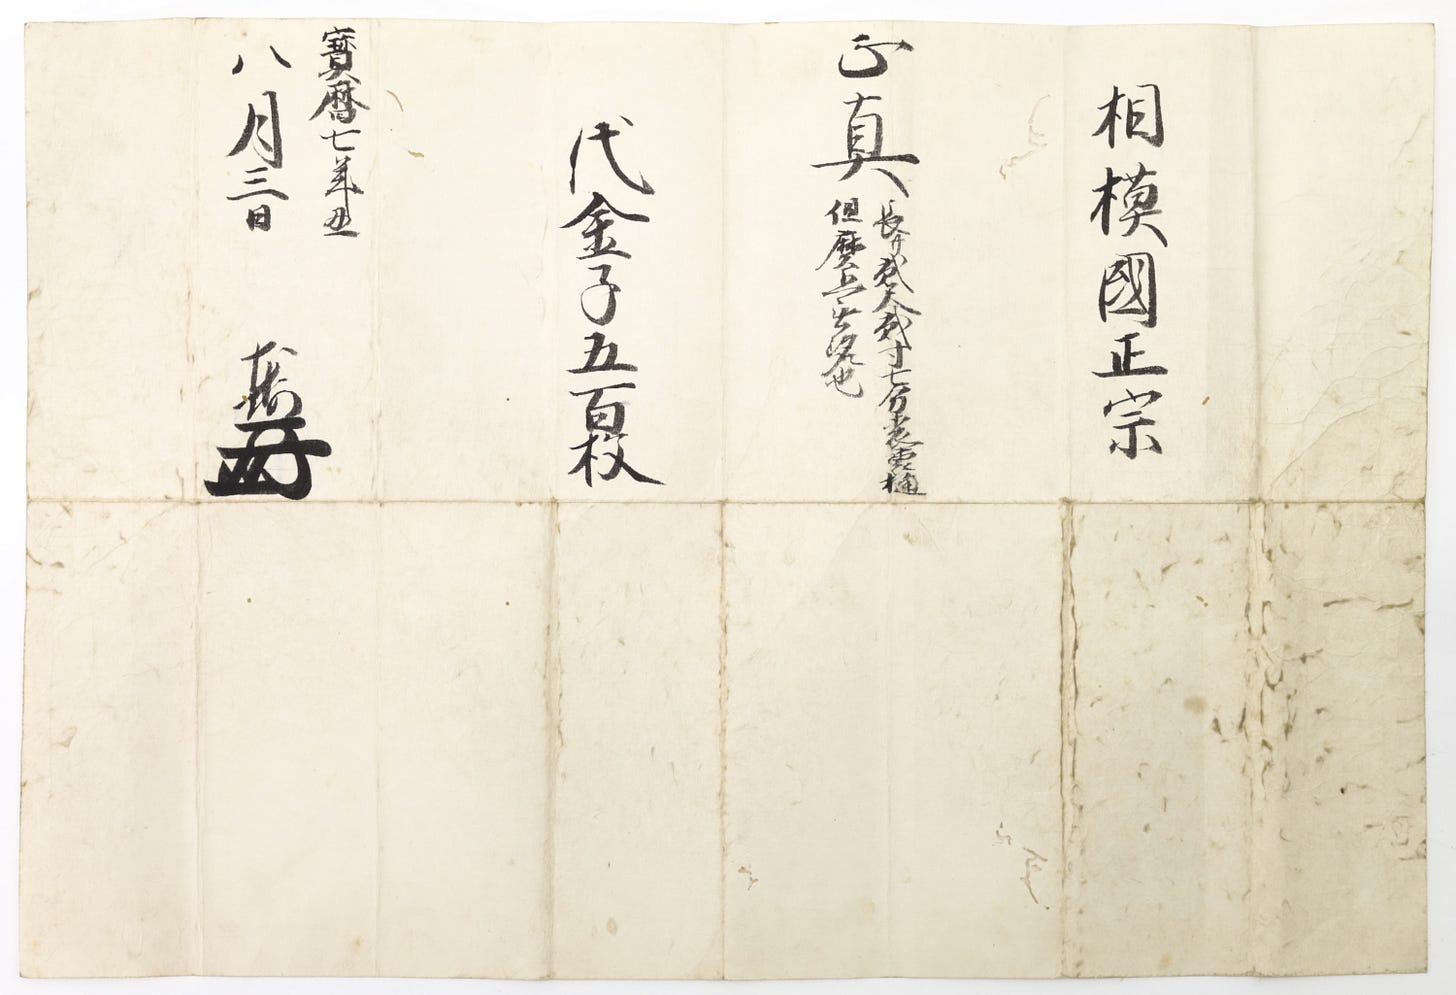 相模國正宗
正真
長サ貳尺貳寸七分表裏樋
但磨上無銘也
代金子五百枚
寶暦七年丑
八月三日
本阿